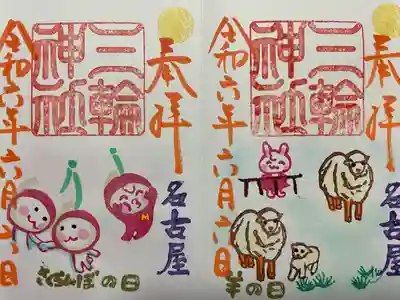 奉拝
三輪
神社
名古屋
令和六年六月六日
さくらんぼの日
奉拝
三輪
神社
名古屋
令和六年六月六日
羊の日